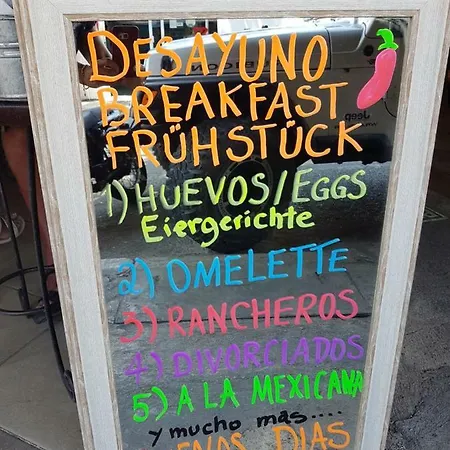 DESAYUNO
BREAKFAST
FRÜHSTÜCK
1) HUEVOS/EGGS
Eiergerichte
2) OMELETTE
3) RANCHEROS
4) DIVORCIADOS
5) A LA MEXICANA
y mucho más....
DIAS
Jeep